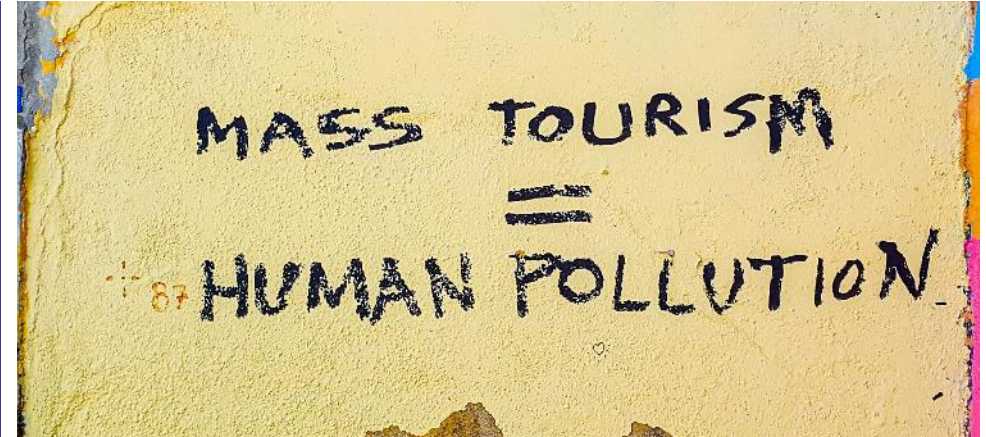 MASS TOURISM
=
87 HUMAN POLLUTION